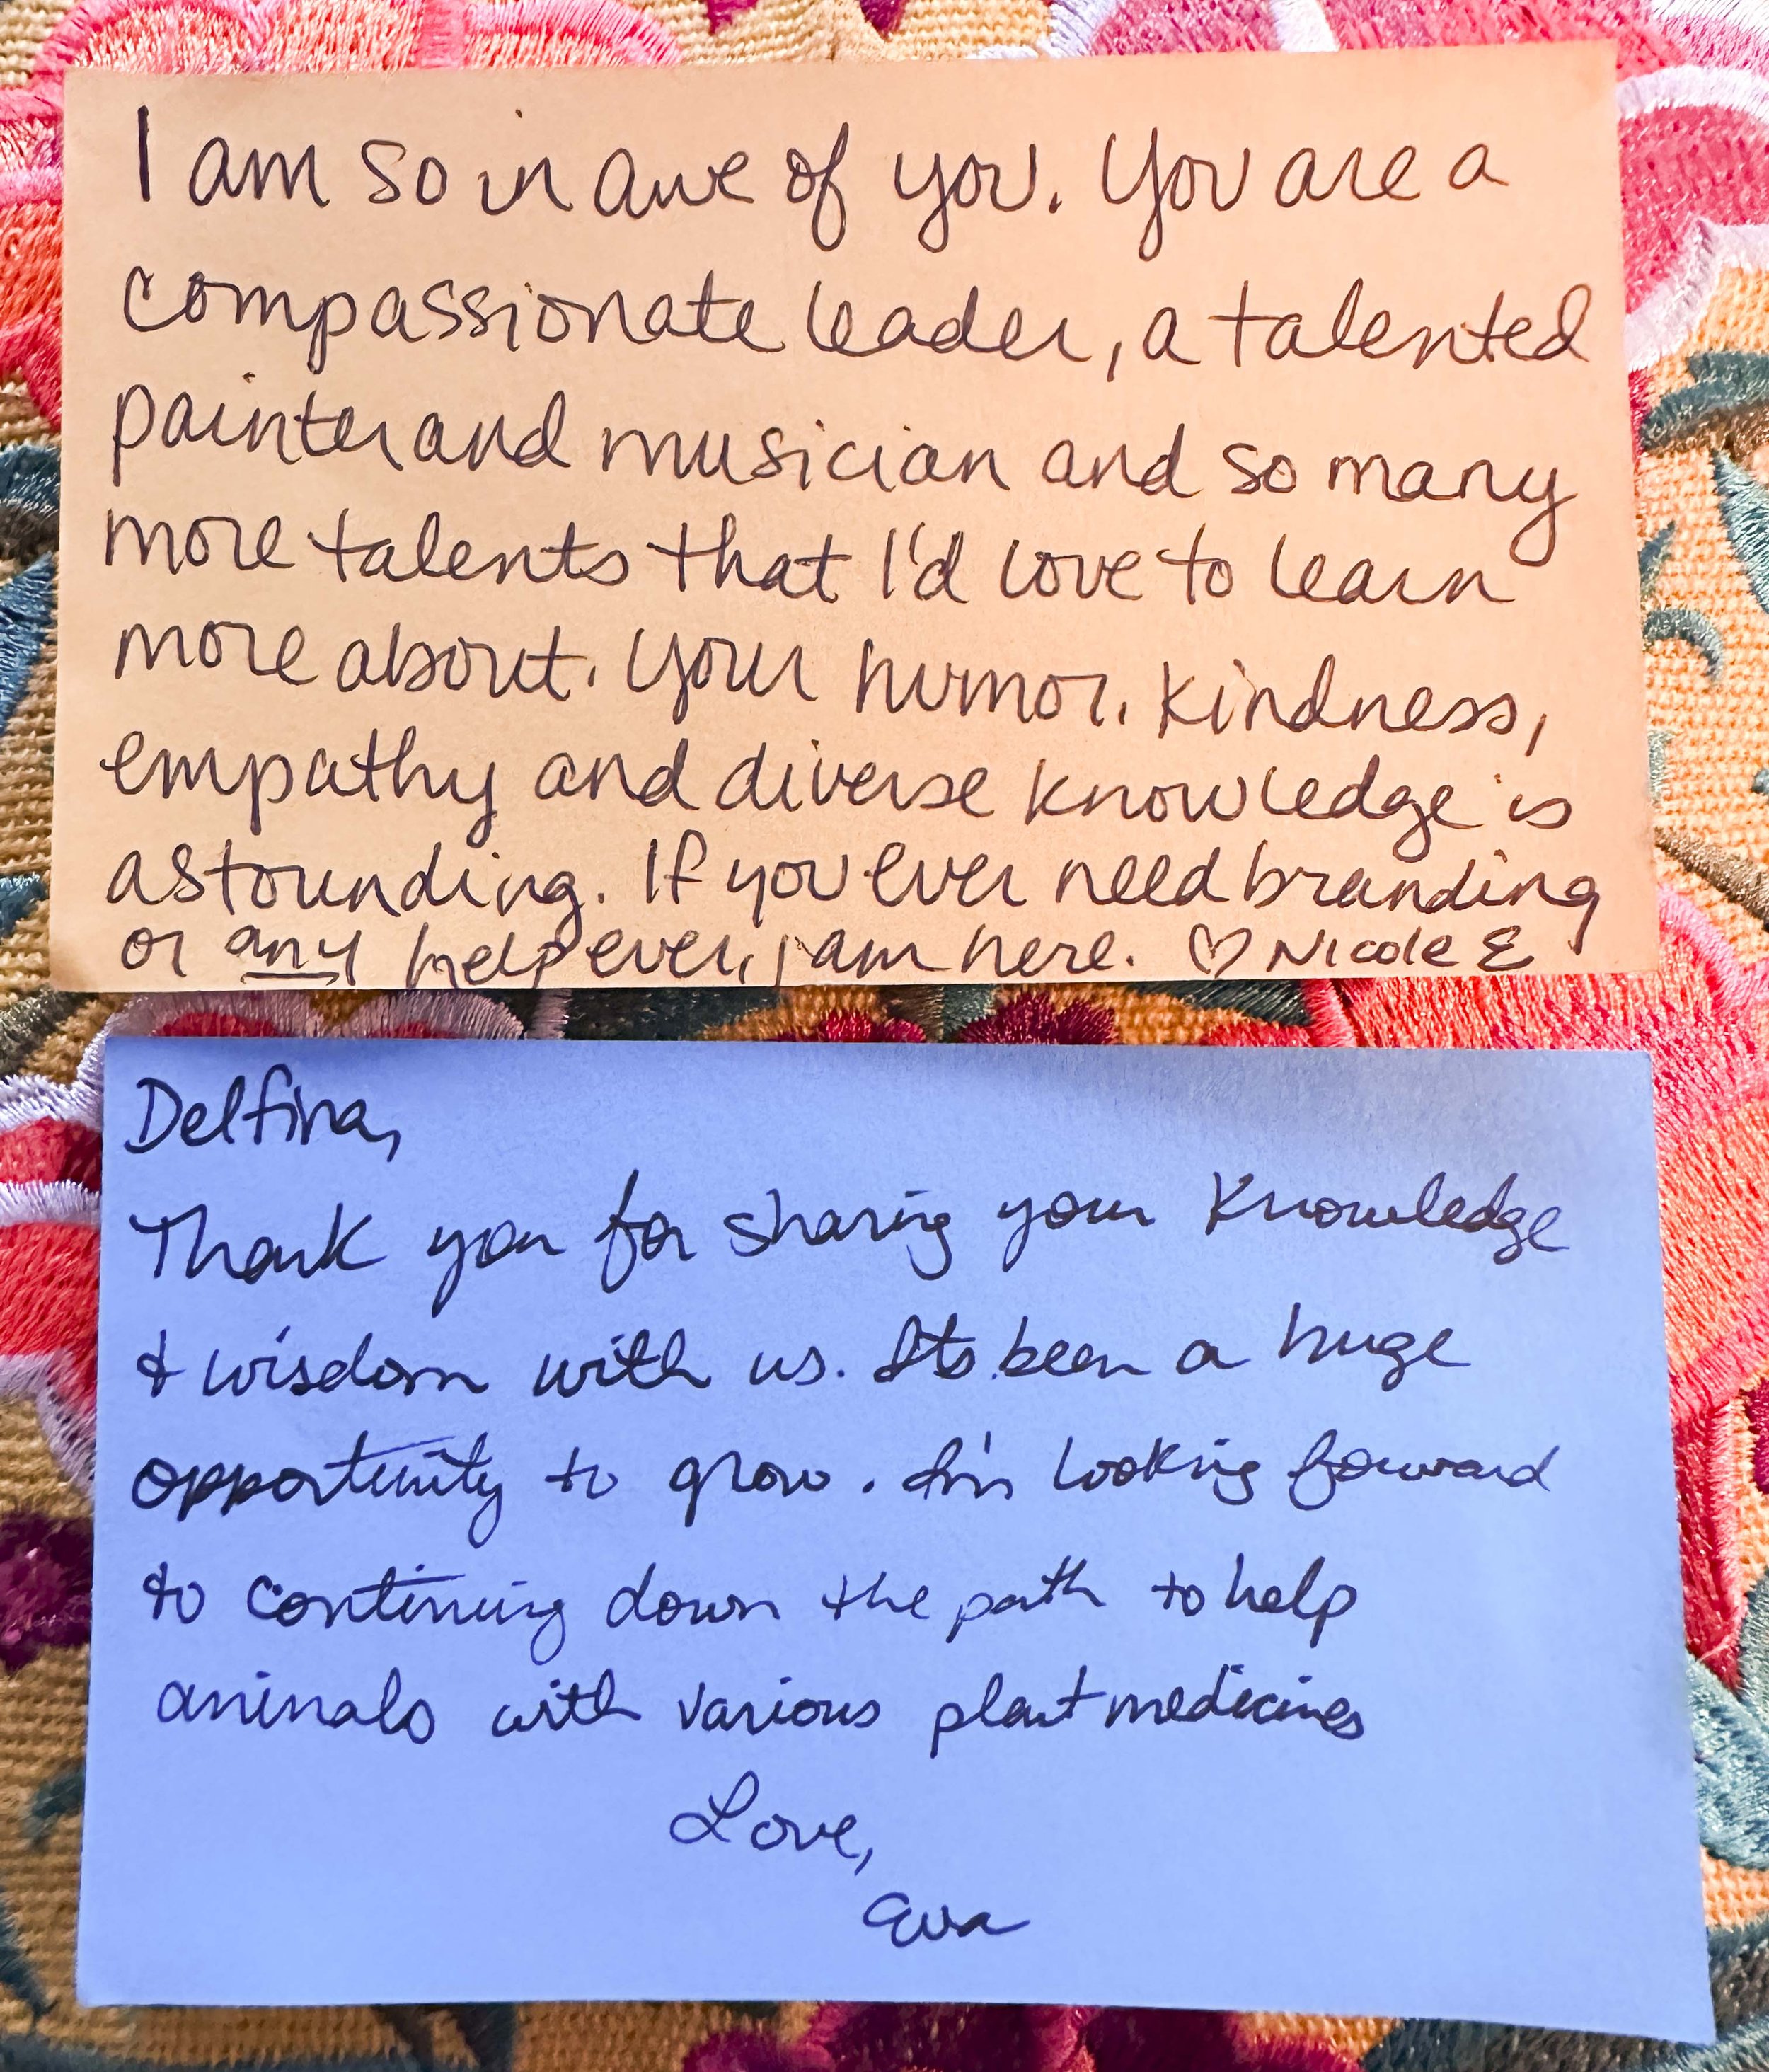 I am so in awe of you. You are a
compassionate leader, a talented
painter and musician and so many
more talents that I'd love to learn
more about. Your humor, kindness,
empathy and diverse knowledge is
astounding. If you ever need branding
or any help ever, I am here. ♡ Nicole E
Delfina,
Thank you for sharing your knowledge
& wisdom with us. Its been a huge
opportunity to grow. I'm looking forward
to continuing down the path to help
animals with various plant medicines
Love,
Eva